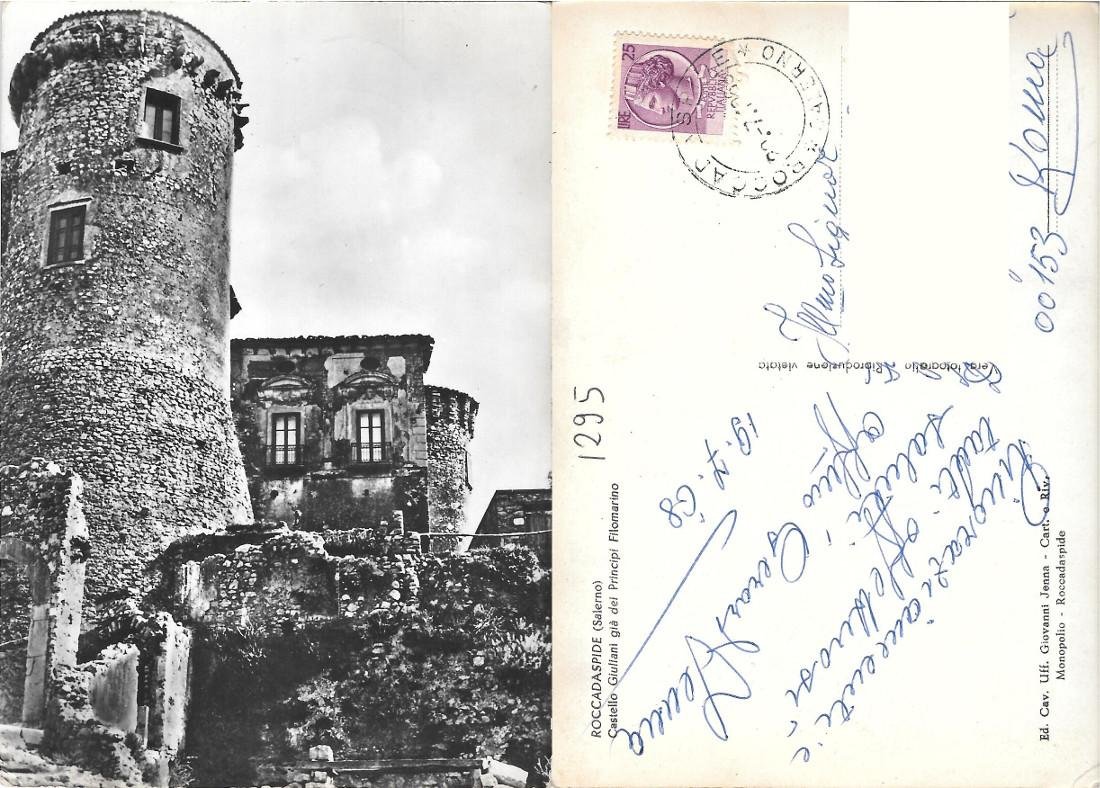 ROCCADASPIDE (Salerno)
Castello Giuliani già dei Principi Filomarino
1295
19.7.68
Ringraziamenti e
saluti affettuosi
Jenna
Vera fotografia Riproduzione vietata
Ed. Cav. Uff. Giovanni Jenna - Cart. e Riv.
Monopolio - Roccadaspide
LIRE 25
REPVBBLICA
ITALIANA
ROCCADASPIDE
* SALERNO *
00153 Roma